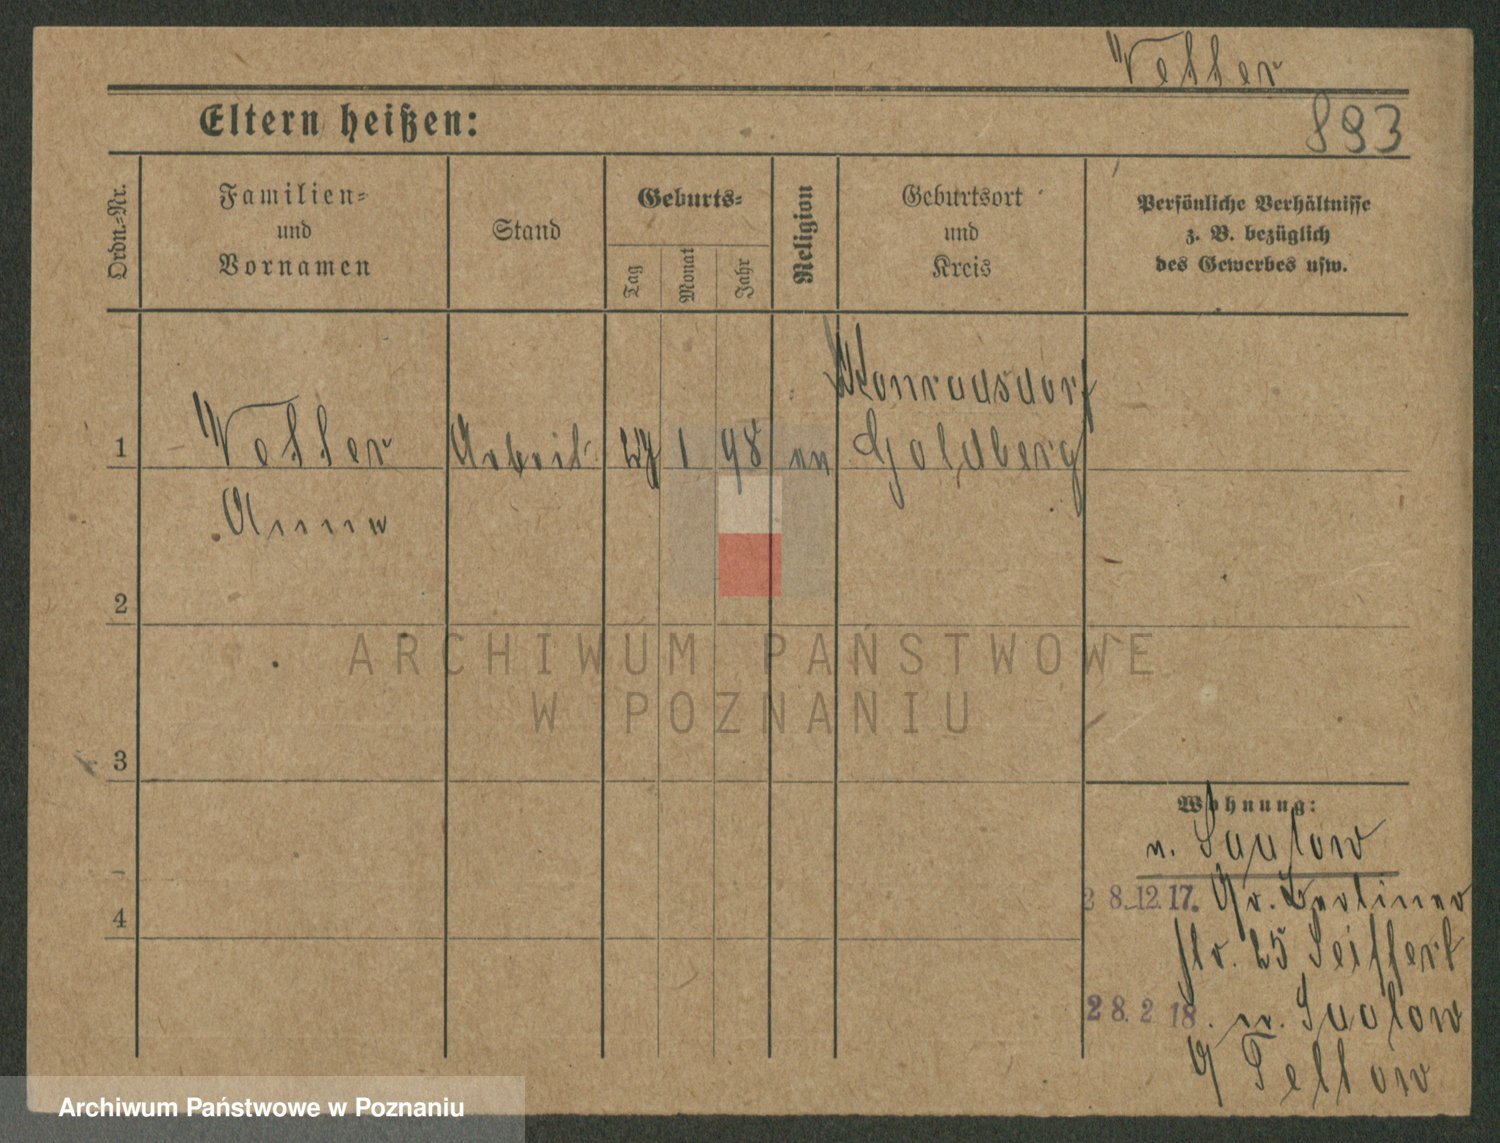 Vetter
893
Eltern heißen:
Ordn.-Nr.
Familien-
und
Vornamen
Stand
Geburts-
Tag
Monat
Jahr
Religion
Geburtsort
und
Kreis
Persönliche Verhältnisse
z. B. bezüglich
des Gewerbes usw.
Konradsdorf
1
Vetter
Arbeit.
27
1
98
ev
Goldberg
Anna
2
ARCHIWUM PAŃSTWOWE
W POZNANIU
3
Wohnung:
n.
28.12.17. Gr. Berliner
str. 25 Seiffert
4
28.2.18. n.
Teltow
Archiwum Państwowe w Poznaniu